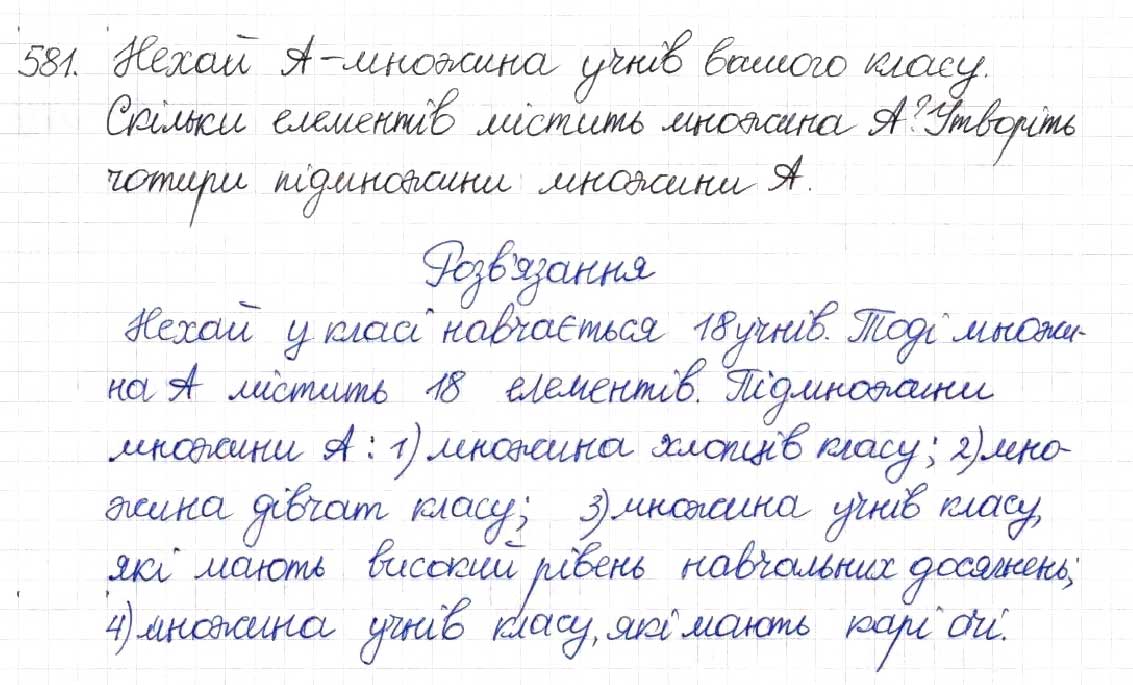 581. Нехай А-множина учнів вашого класу.
Скільки елементів містить множина А? Утворіть
чотири підмножини множини А.
Розв'язання
Нехай у класі навчається 18 учнів. Тоді множи-
на А містить 18 елементів. Підмножини
множини А: 1) множина хлопців класу; 2) мно-
жина дівчат класу; 3) множина учнів класу,
які мають високий рівень навчальних досягнень;
4) множина учнів класу, які мають карі очі.